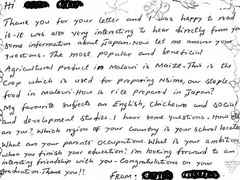 Hi
Thank you for your letter and I was happy to read
it. It was also very interesting to hear directly from you
some information about Japan. Now let me answer your
questions. The most popular and beneficial
Agricultural product in Malawi is Maize. This is the
Crop which is used for preparing Nsima, our staple
food in malawi. How is rice prepared in Japan?
My favourite subjects are English, Chichewa and social
and development studies. I have some questions. How old
are you? Which region of your country is your school located?
What are your parents' occupations. What is your ambition
when you finish your education? I'm looking forward to an
interesting friendship with you. Congratulations on your
graduation. Thank you!!
FROM: